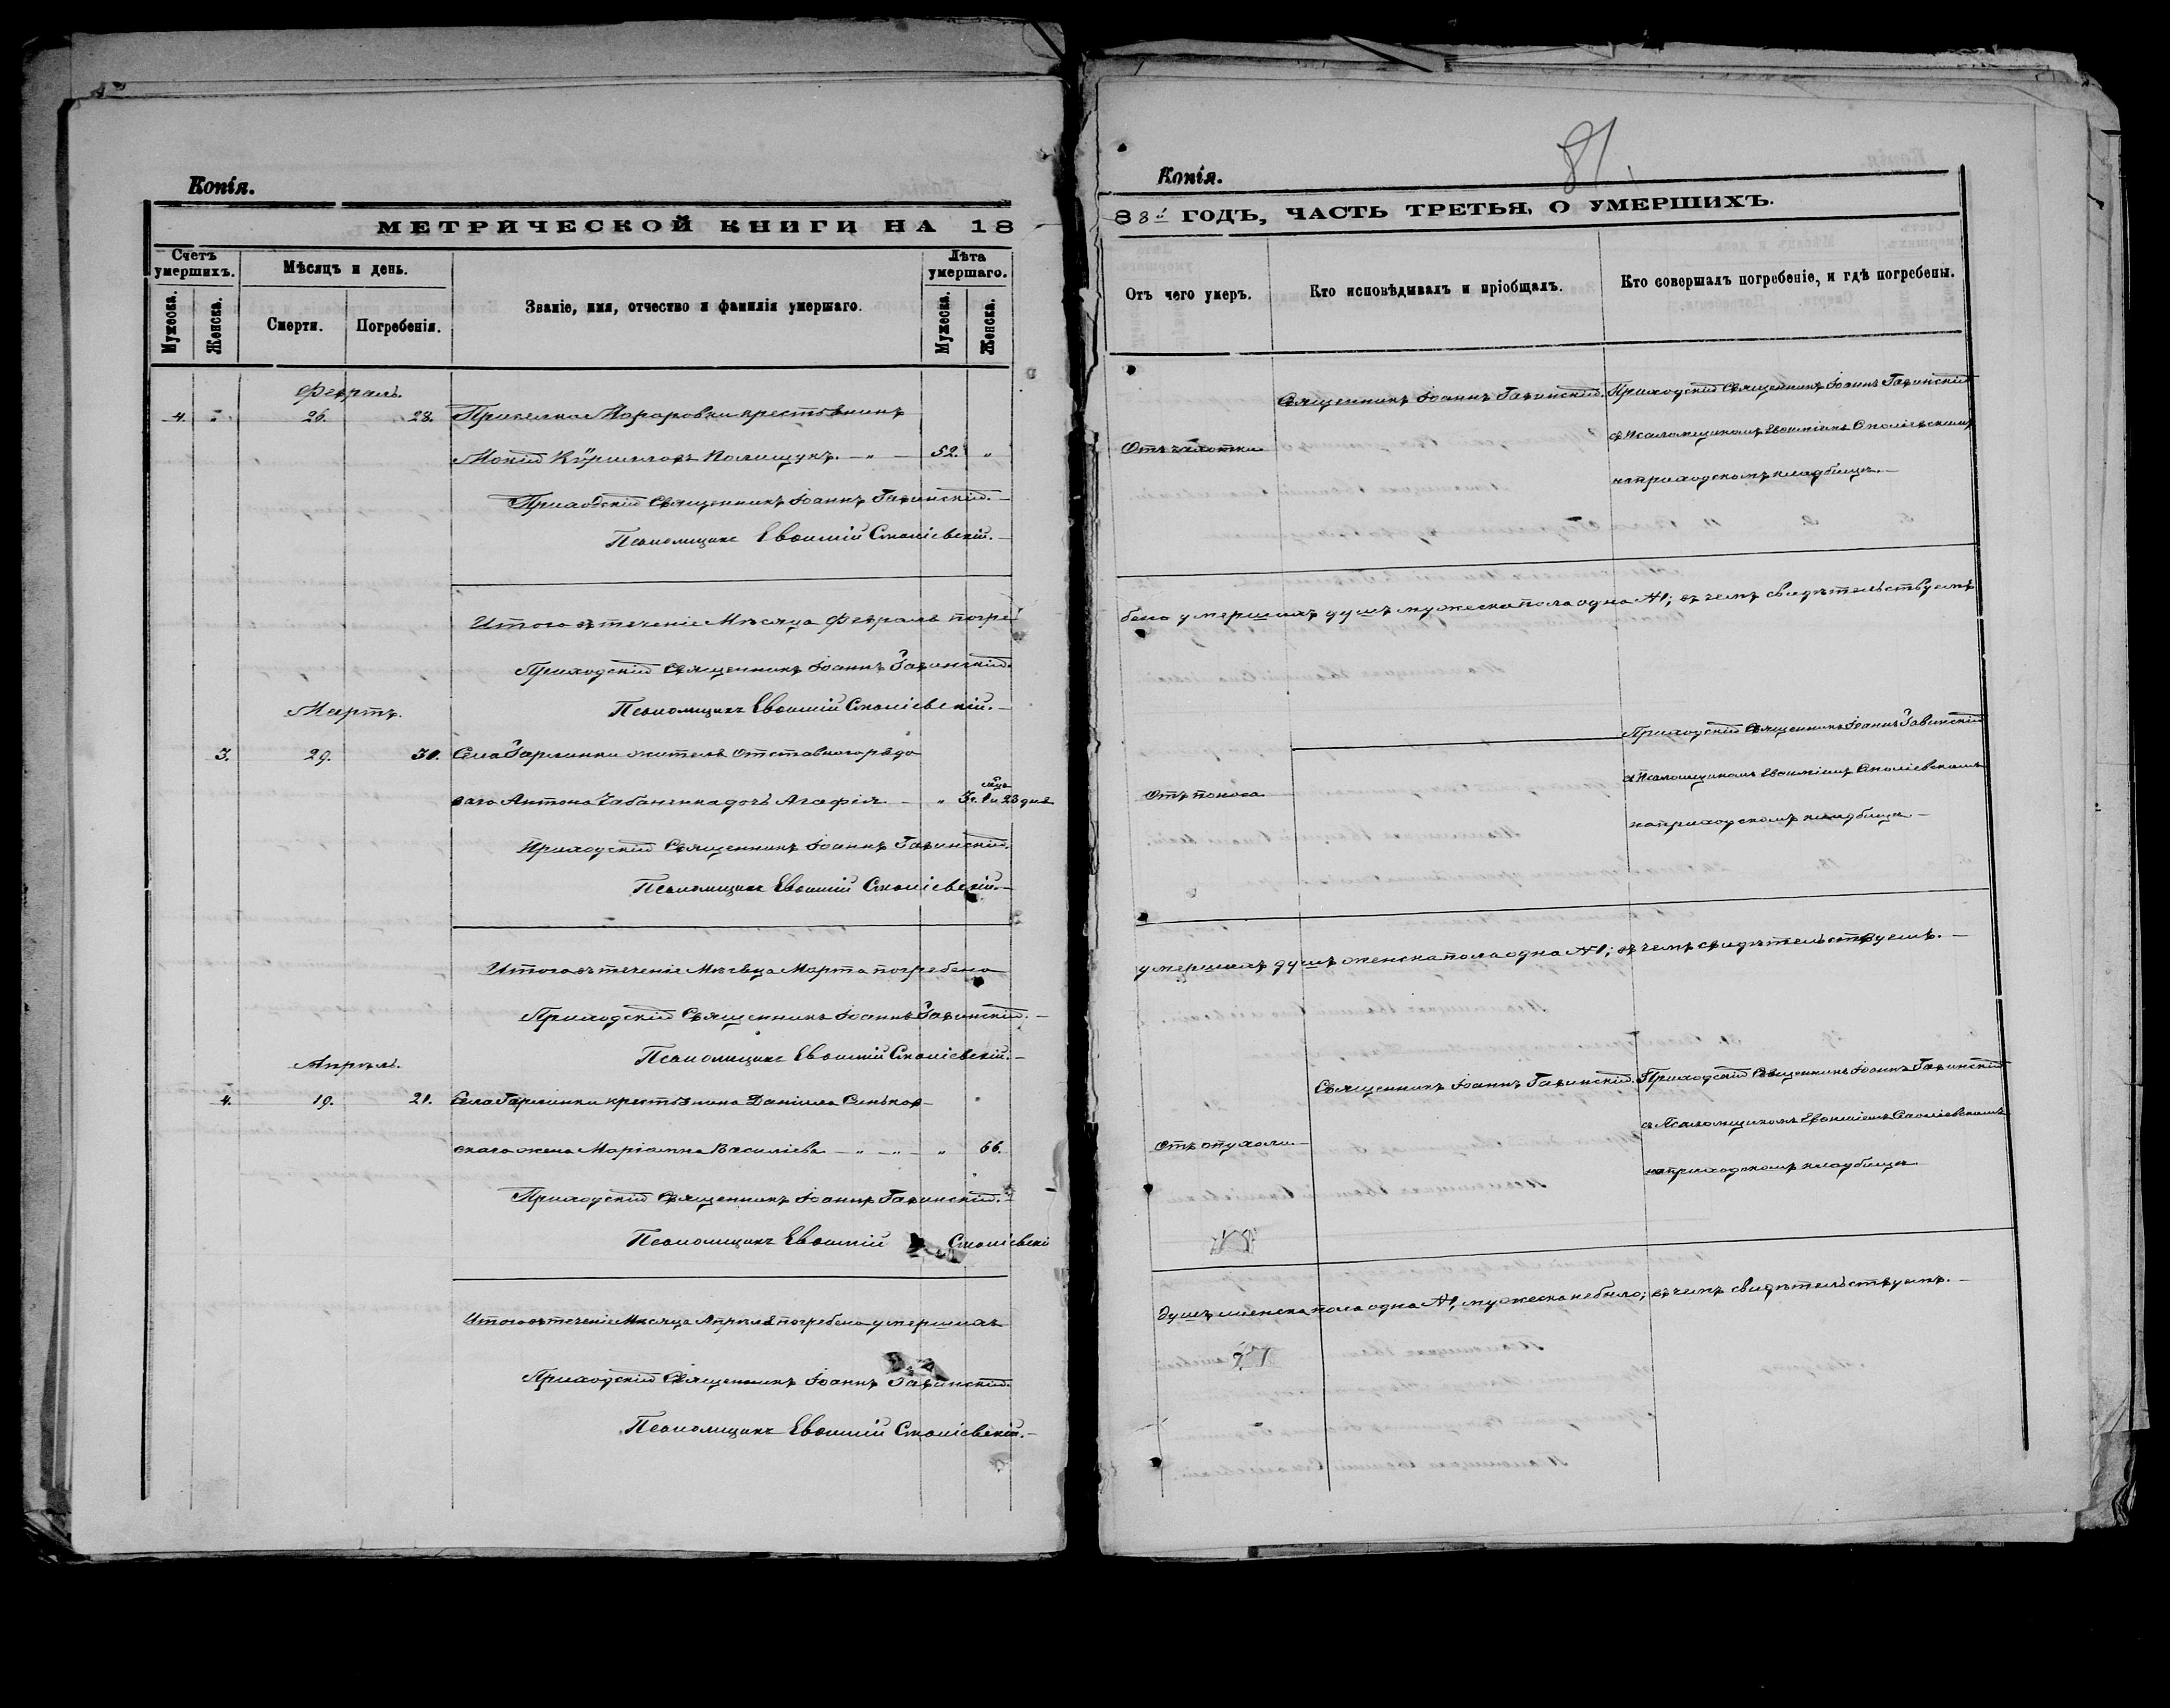 Копія.
МЕТРИЧЕСКОЙ КНИГИ НА 18
Счетъ умершихъ.
Мѣсяцъ и день.
Званіе, имя, отчество и фамилія умершаго.
Лѣта умершаго.
Мужеска.
Женска.
Смерти.
Погребенія.
Мужеска.
Женска.
Февраль.
4. " 26. 28. Приселка Макаровки крестьянинъ
Мокій Кѷрилловъ Полищукъ. — " — 52. "
Приходскій Священникъ Іоаннъ Гавинскій. —
Псаломщикъ Евѳимій Смолієвскій. —
Итого въ теченіе Мѣсяца Февраля погре
Приходскій Священникъ Іоаннъ Гавинскій.
Псаломщикъ Евѳимій Смолієвскій. —
Мартъ.
3. 29. 30. Села Гарлинки жителя отставного рядо
ваго Антона Чабаненка дочь Агафія — " 3 г. 1 мцъ и 23 дня
Приходскій Священникъ Іоаннъ Гавинскій.
Псаломщикъ Евѳимій Смолієвскій. —
Итого въ теченіе Мѣсяца Марта погребено
Приходскій Священникъ Іоаннъ Гавинскій. —
Псаломщикъ Евѳимій Смолієвскій. —
Апрѣль.
4. 19. 21. Села Гарлинки крестьянина Даніила Синьков-
скаго жена Маріамна Василіева — " — " — " 66.
Приходскій Священникъ Іоаннъ Гавинскій.
Псаломщикъ Евѳимій Смолієвскі
Итого въ теченіе Мѣсяца Апрѣля погребено умершихъ
Приходскій Священникъ Іоаннъ Гавинскій.
Псаломщикъ Евѳимій Смолієвскій. —
81.
Копія.
83й ГОДЪ, ЧАСТЬ ТРЕТЬЯ, О УМЕРШИХЪ.
Отъ чего умеръ.
Кто исповѣдывалъ и пріобщалъ.
Кто совершалъ погребеніе, и гдѣ погребены.
Священникъ Іоаннъ Гавинскій. Приходскій Священникъ Іоаннъ Гавинскій
Отъ чахотки
съ Псаломщикомъ Евѳиміемъ Смолієвскимъ
на приходскомъ кладбищѣ. —
бено умершихъ душъ мужеска пола одна №1; въ чемъ свидѣтельствуемъ
Приходскій Священникъ Іоаннъ Гавинскій
Отъ поноса
съ Псаломщикомъ Евѳиміемъ Смолієвскимъ
на приходскомъ кладбищѣ. —
умершихъ душъ женска пола одна №1; въ чемъ свидѣтельствуемъ. —
Священникъ Іоаннъ Гавинскій. Приходскій Священникъ Іоаннъ Гавинскій
Отъ опухоли —
съ Псаломщикомъ Евѳиміемъ Смолієвскимъ
на приходскомъ кладбищѣ
душъ женска пола одна №1, мужеска не было; въ чемъ свидѣтельствуемъ. —